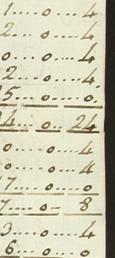 1....o....4
2....o....4
o....o....4
2....o....4
5....o....o.
4....o....24
o....o....4
o....o....4
7....o....o
7....o....8
3....o....4
6....o....o